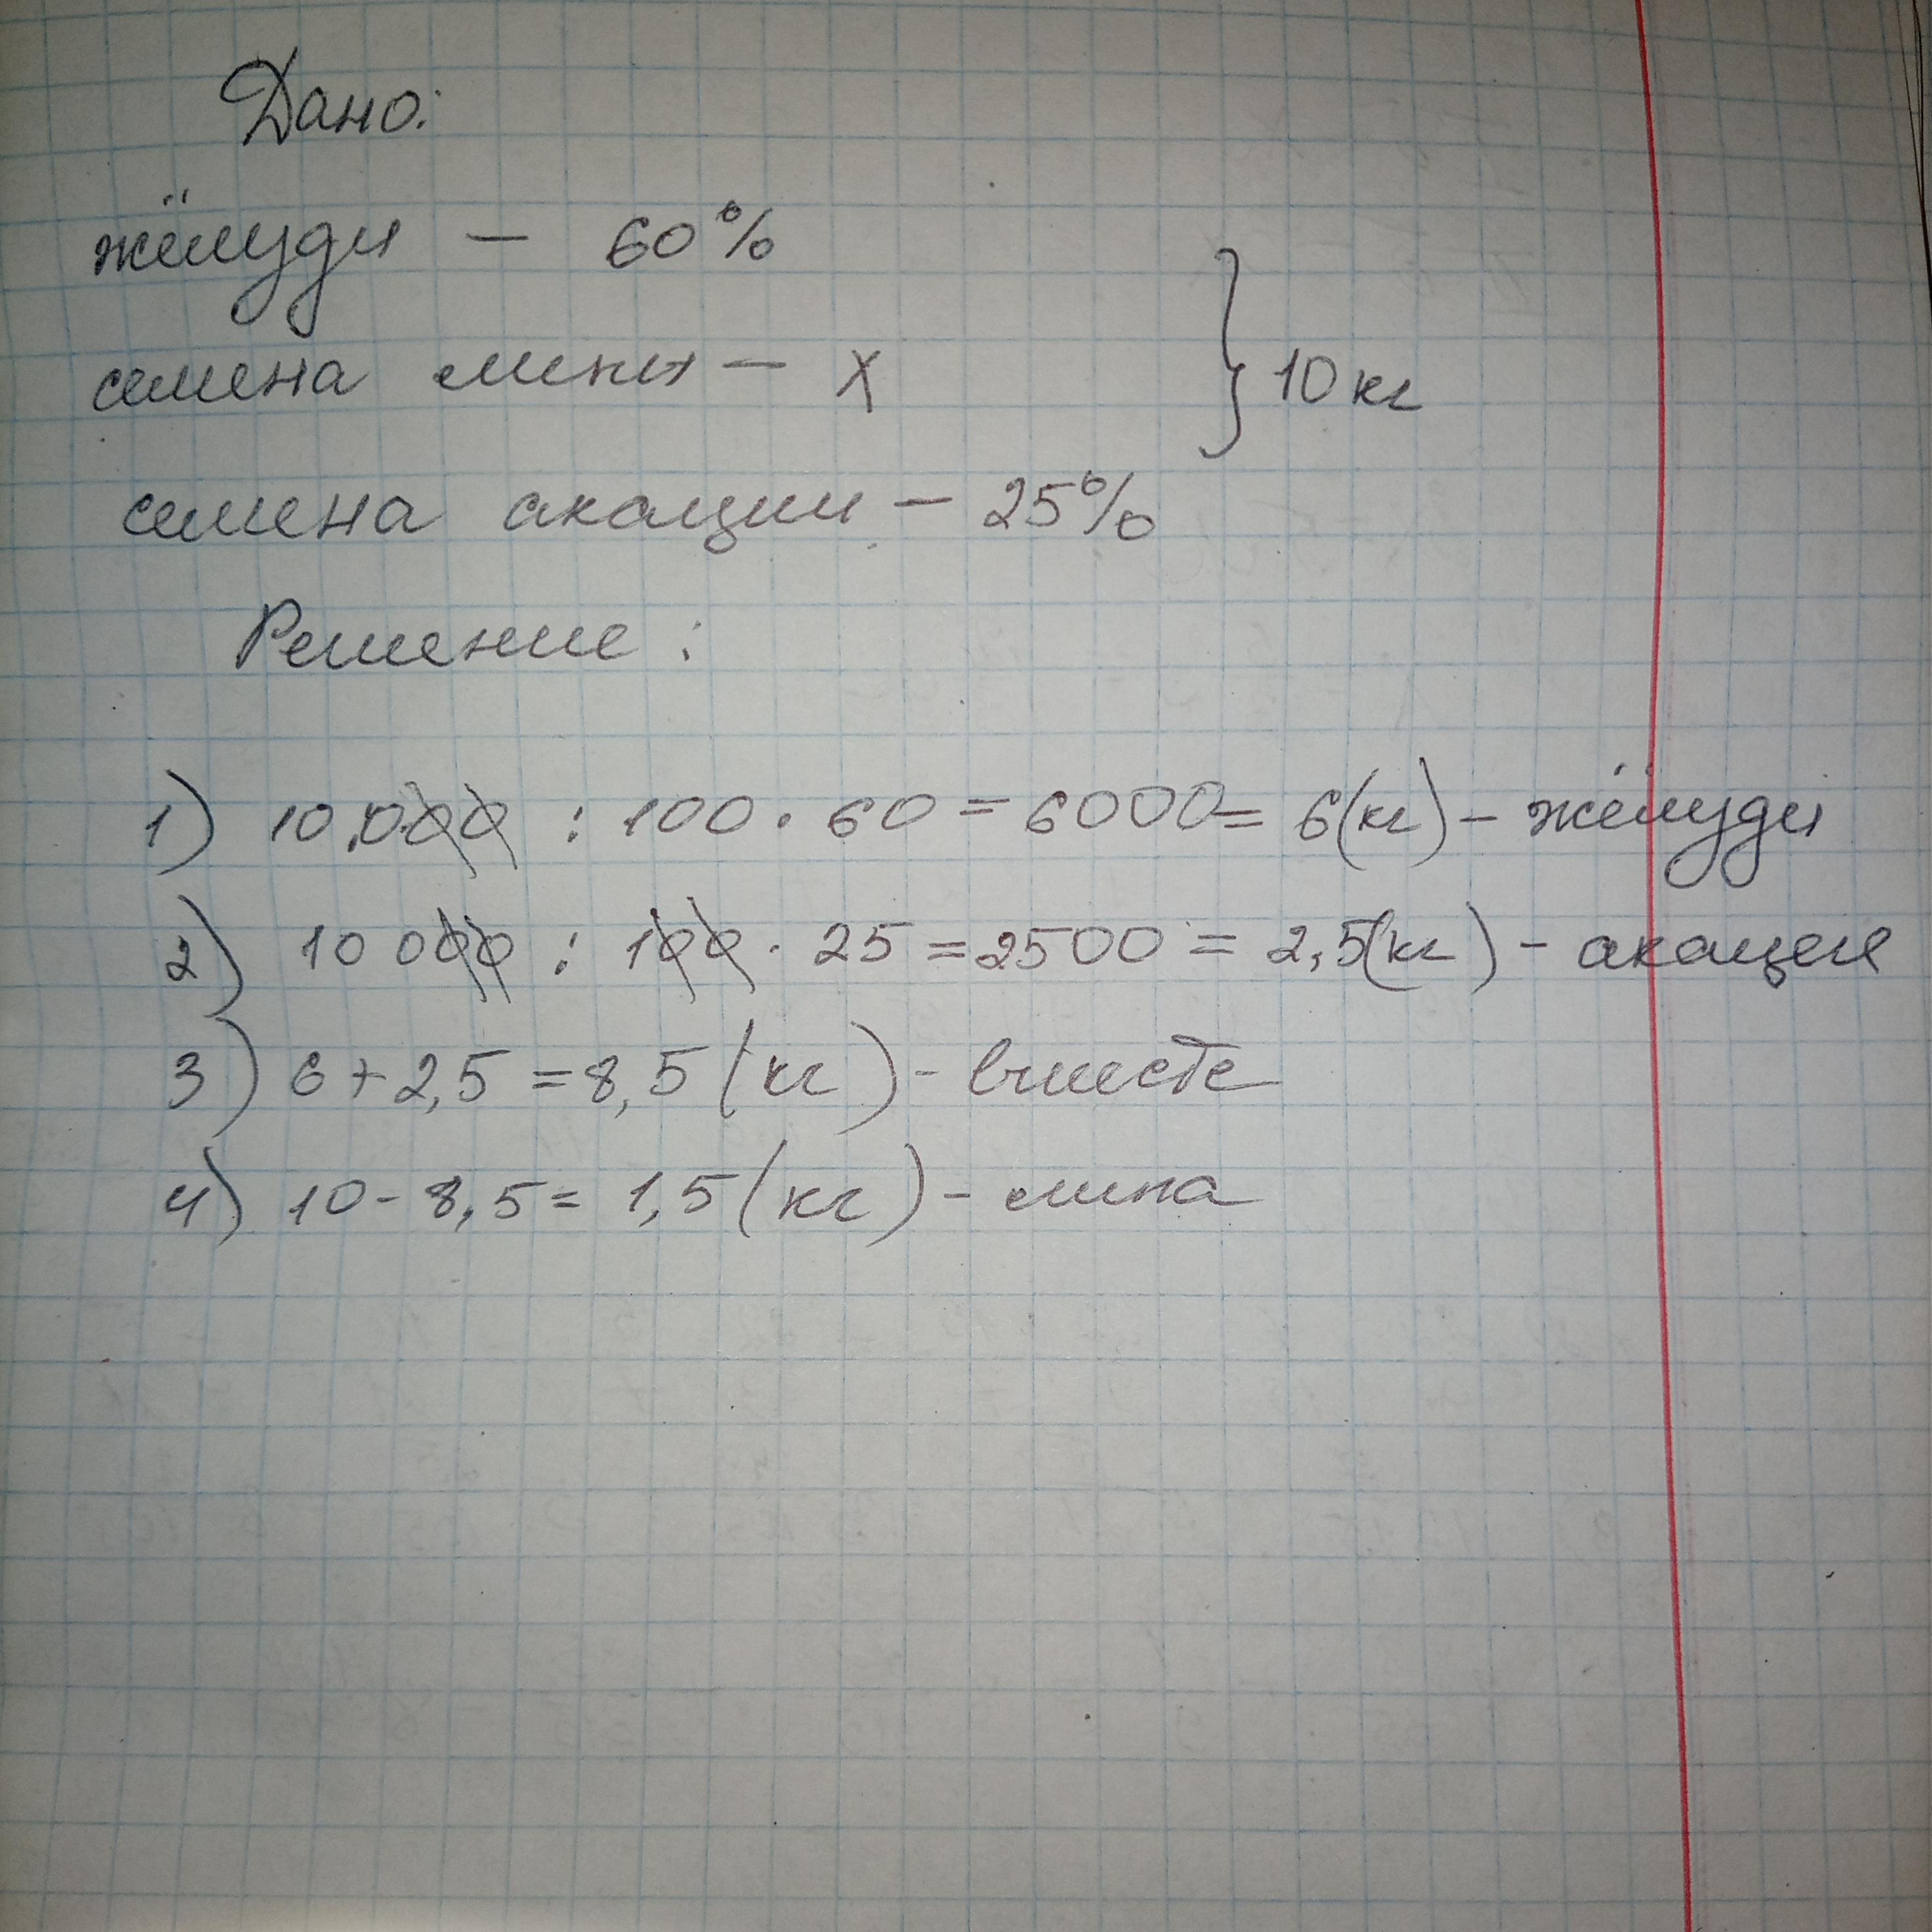 Дано:
жёлуди — 60%
семена липы — x
} 10 кг
семена акации — 25%
Решение:
1) 10.000 : 100 · 60 = 6000 = 6(кг) – жёлуди
2) 10 000 : 100 · 25 = 2500 = 2,5(кг) – акация
3) 6 + 2,5 = 8,5 (кг) – вместе
4) 10 - 8,5 = 1,5 (кг) – липа